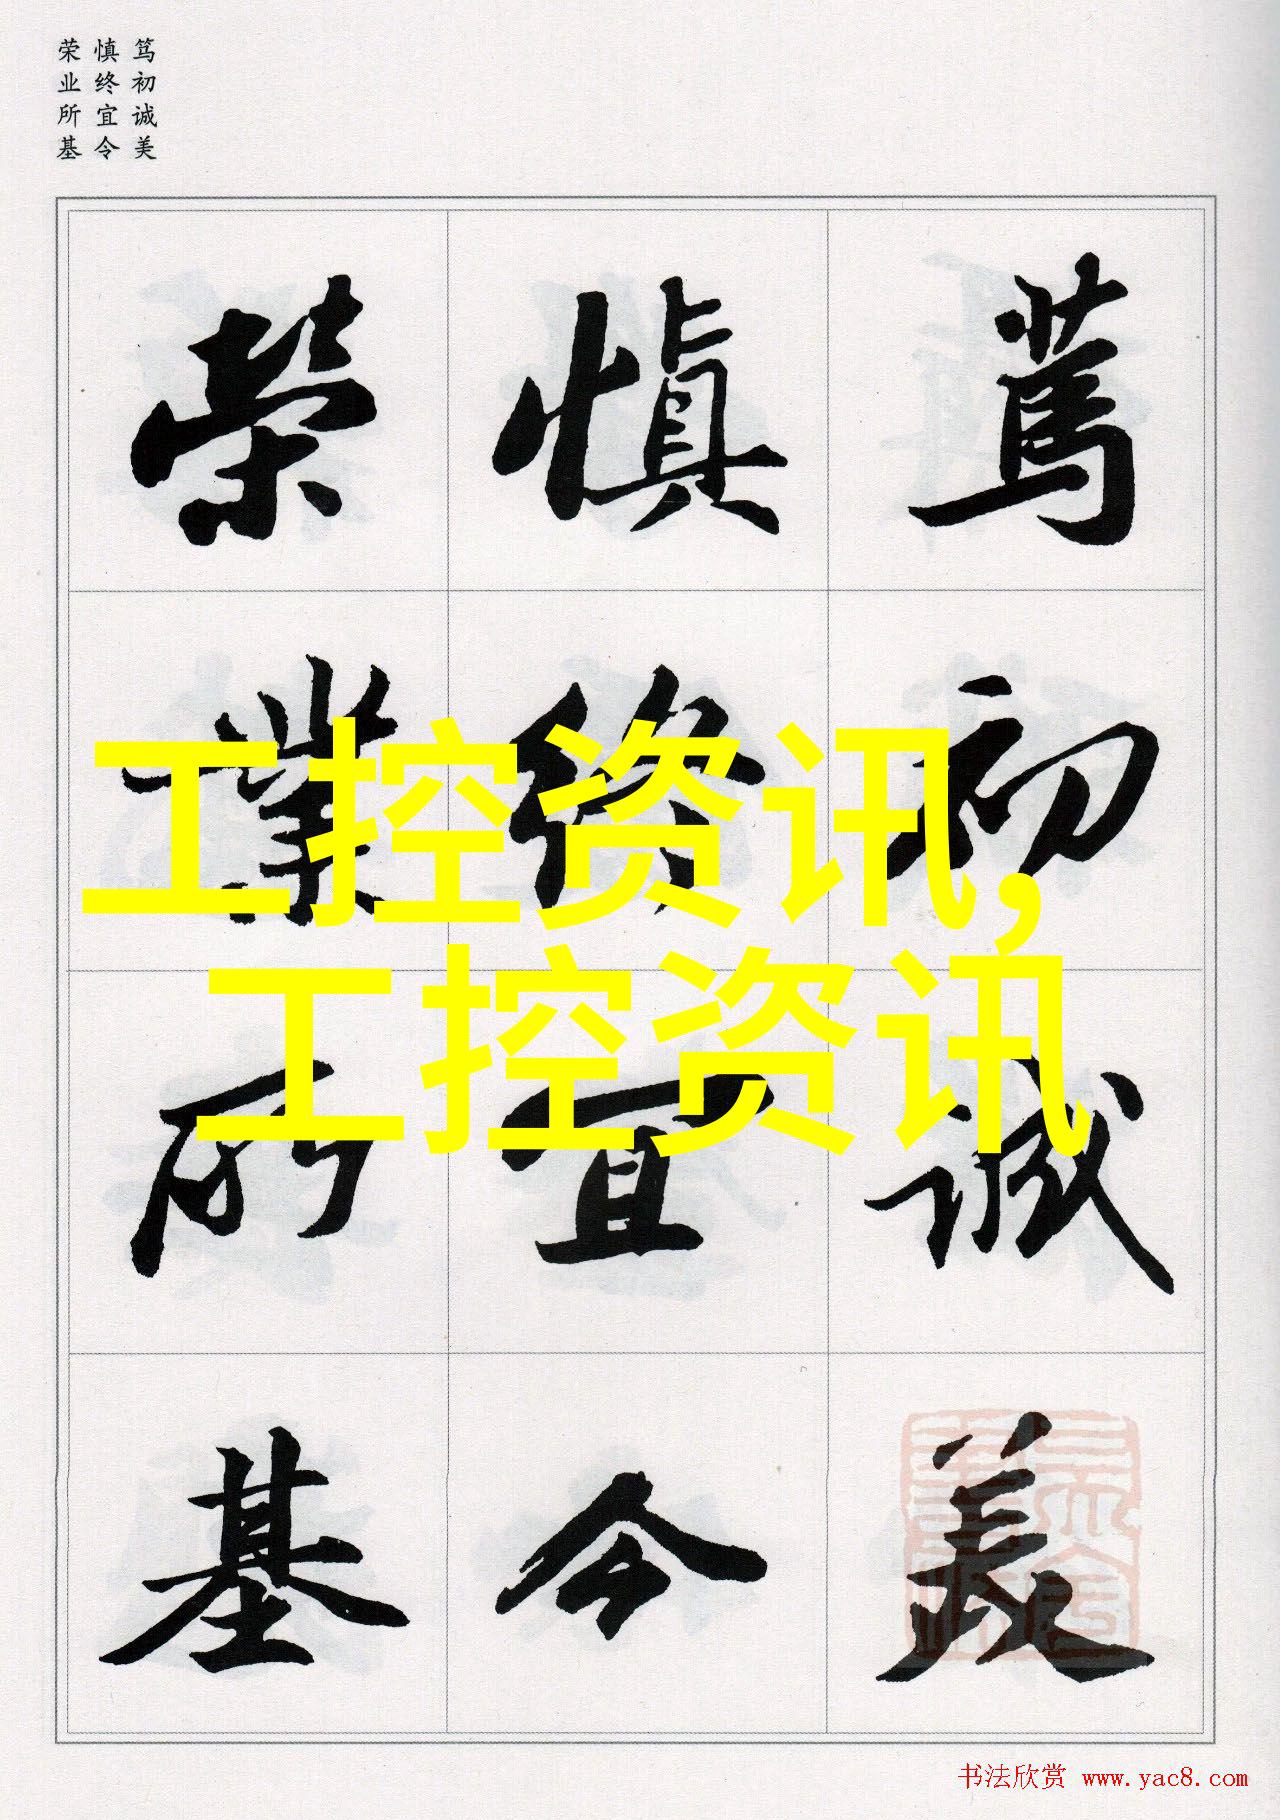 笃初诚美
慎终宜令
荣业所基
篤初誠美
慎終宜令
榮業所基
工控资讯,
工控资讯
书法欣赏 www.yac8.com